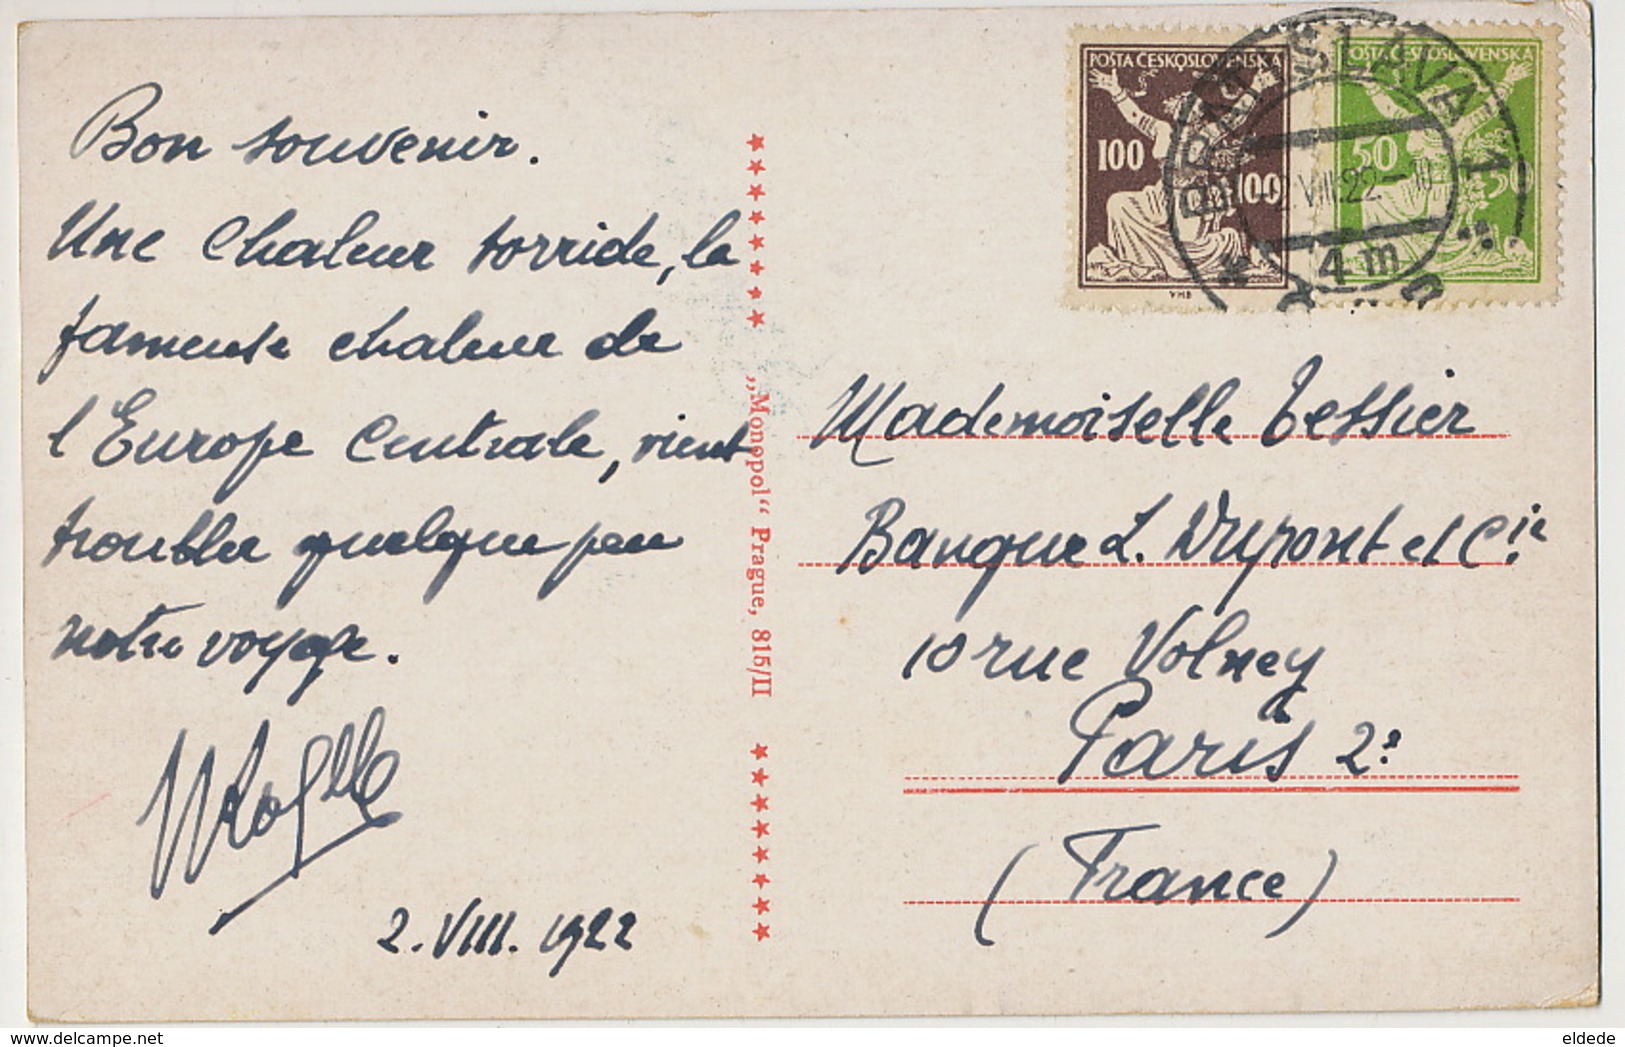 Bon souvenir.
Une Chaleur torride, la
fameuse chaleur de
l'Europe Centrale, vient
troubler quelque peu
notre voyage.
2.VIII.1922
„Monopol“ Prague, 815/II
POSTA ČESKOSLOVENSKÁ
100
100
VHB
POSTA ČESKOSLOVENSKÁ
50
BRATISLAVA 1
2.VIII.22.-10
* 4 m
Mademoiselle Tessier
Banque L. Dupont et Cie
10 rue Volney
Paris 2e
(France)
eldede
delcampe.net